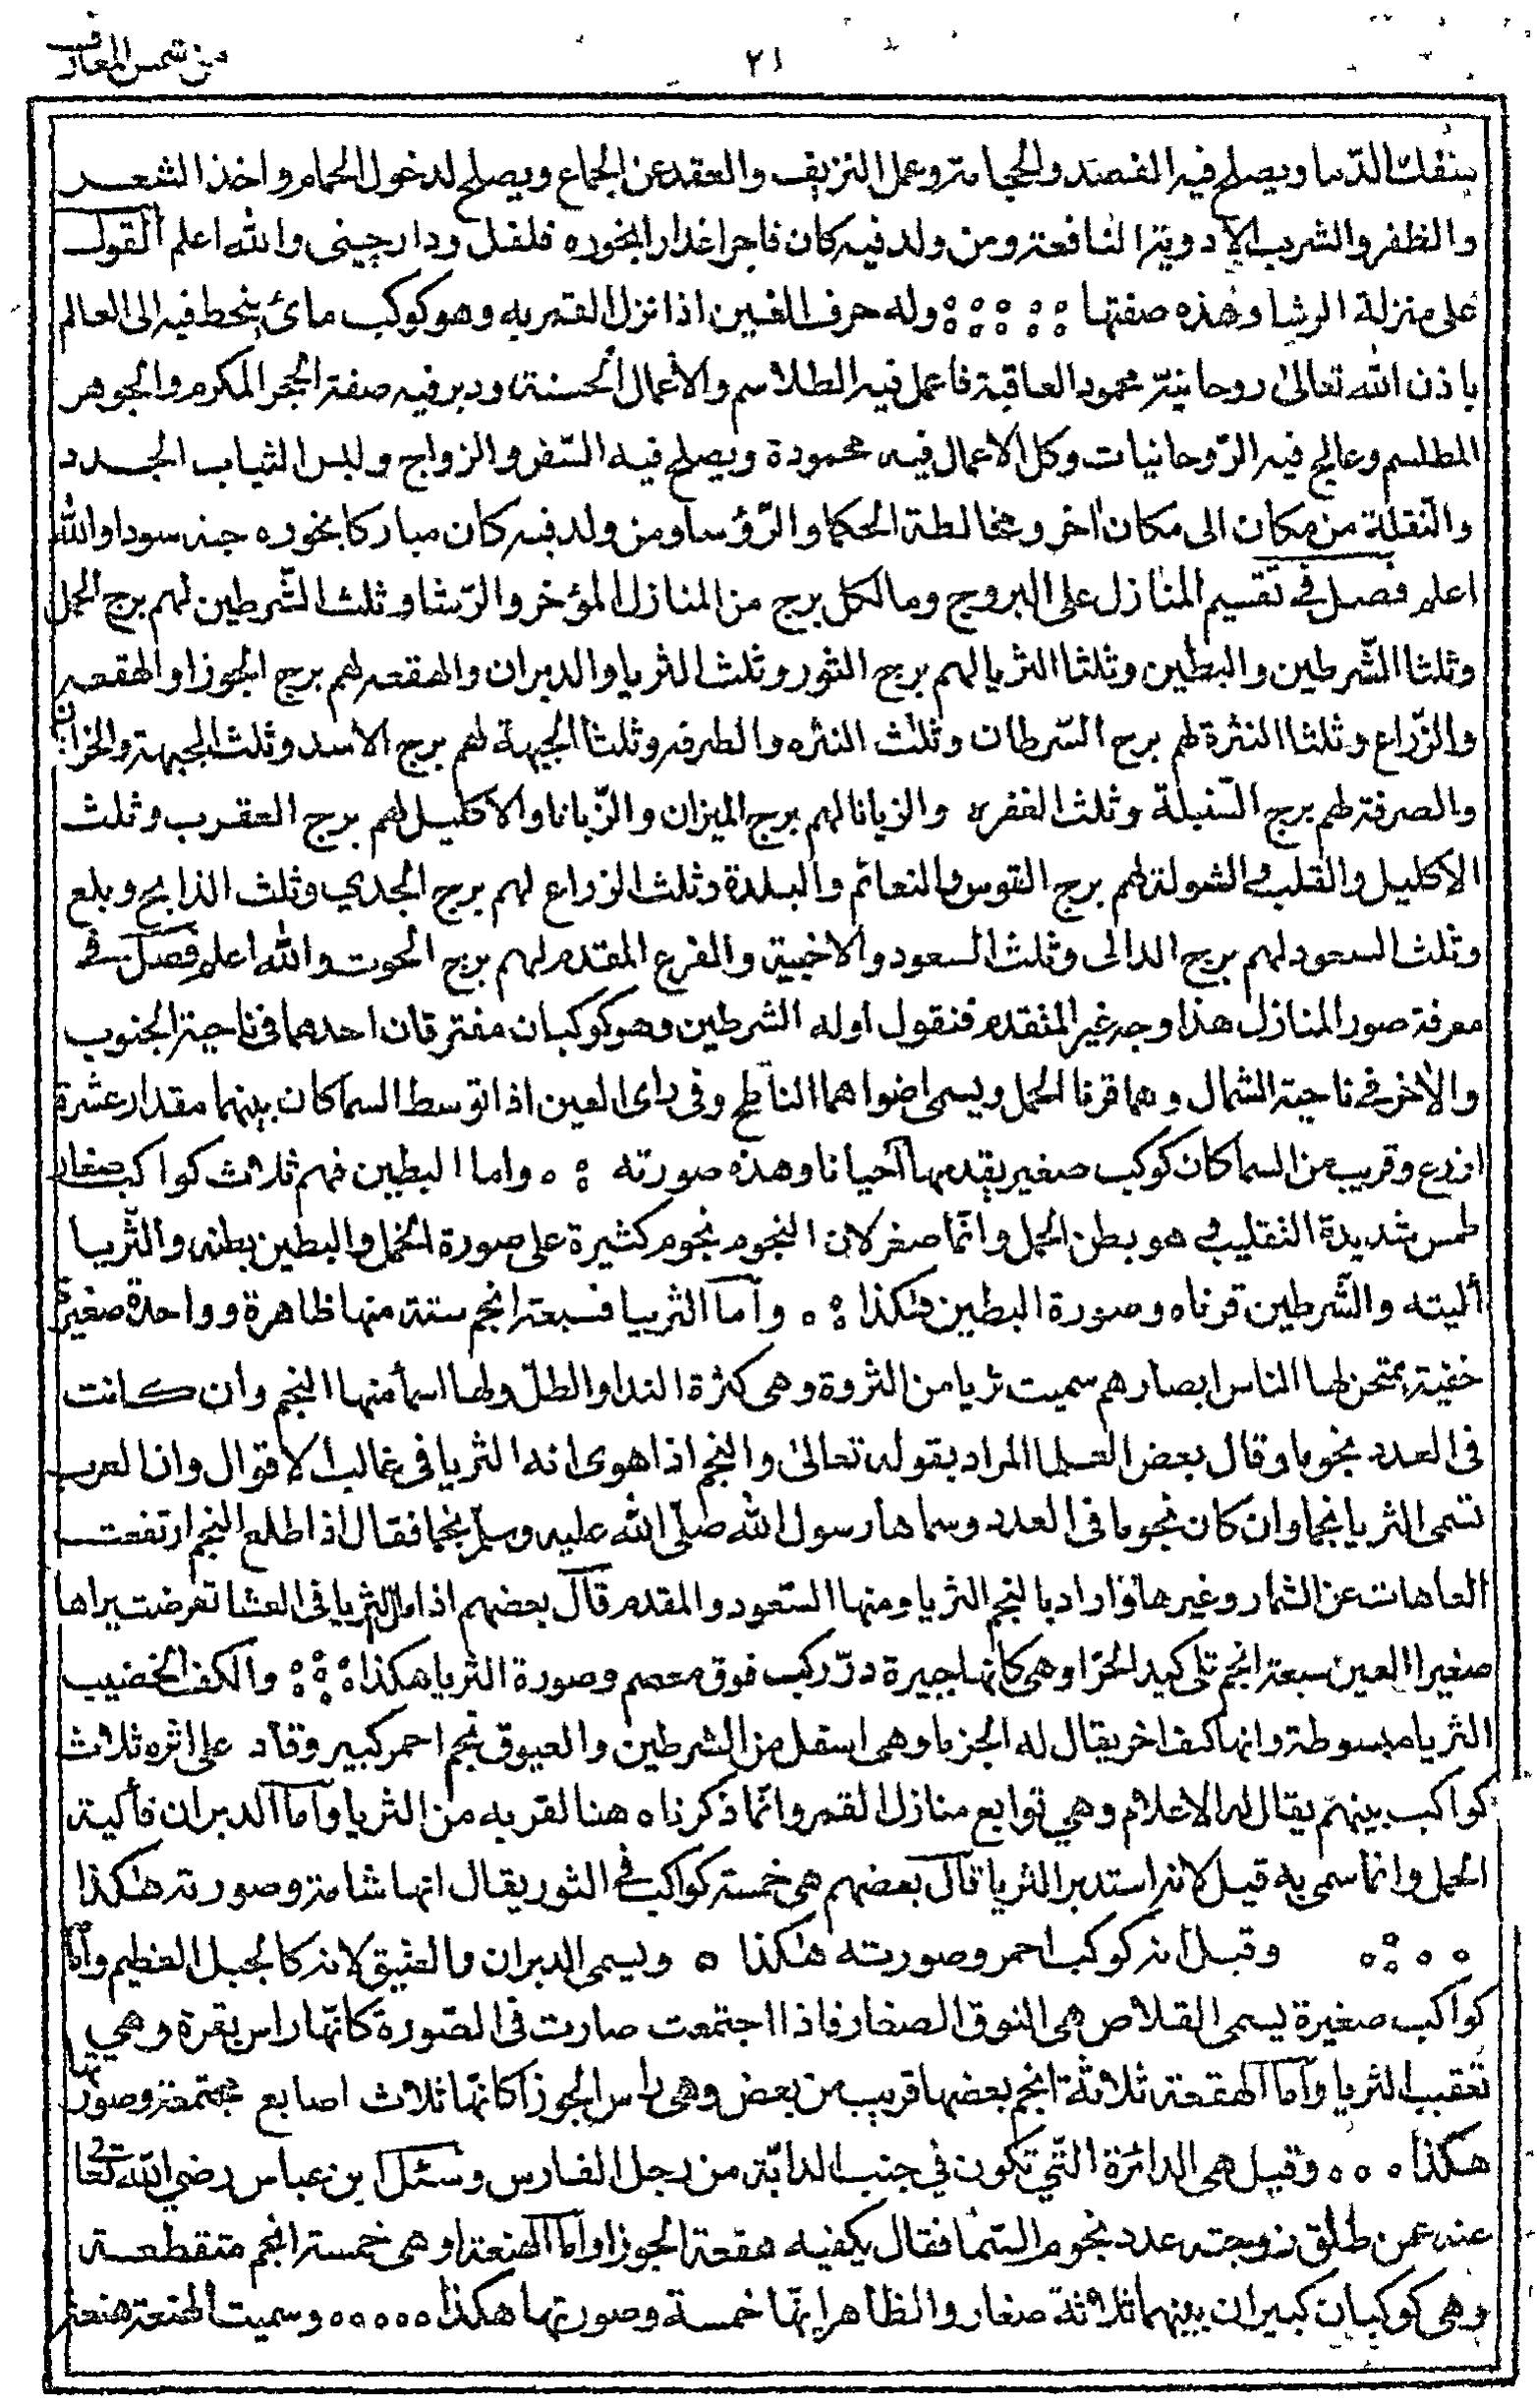 ٢١
من شمس المعارف
الدما ويصلح فيه الفصد والحجامة وعمل النزيف والعقد عن الجماع ويصلح لدخول الحمام واخذ الشعر
والظفر والشرب الادوية النافعة ومن ولد فيه كان فاجرا غدارا بخوره فلفل ودارجينى والله اعلم القول
على منزلة الرشا وهذه صفتها وله حرف الغين اذا نزل القمر به وهو كوكب مائ ينحط فيه الى العالم
باذن الله تعالى روحانية محمود العاقبة فاعمل فيه الطلاسم والأعمال الحسنة ودبر فيه صفة الحجر المكرم والجوهر
المطلسم وعالج فيه الرّوحانيات وكل الاعمال فيه محمودة ويصلح فيه السّفر والزواج ولبس الثياب الجدد
والنقلة من مكان الى مكان اخر ومخالطة الحكما والرّؤسا ومن ولد فيه كان مباركا بخوره حبه سودا والله
اعلم فصل فى تقسيم المنازل على البروج وما لكل برج من المنازل المؤخر والرّشا وثلث الشّرطين لهم برج الحمل
وثلثا الشّرطين والبطين وثلثا الثريا لهم برج الثور وثلث الثريا والدبران والهقعه لهم برج الجوزا والهقعه
والزّراع وثلثا النثرة لهم برج السّرطان وثلث النثره والطرفه وثلثا الجبهة لهم برج الاسد وثلث الجبهة والخراتان
والصرفة لهم برج السّنبلة وثلث الغفره والزبانا لهم برج الميزان والزّبانا والاكليل لهم برج العقرب وثلث
الاكليل والقلب والشولة لهم برج القوس والنعائم والبلدة وثلث الزراع لهم برج الجدي وثلث الذابح وبلع
وثلث السعود لهم برج الدالى وثلث السعود والاخبية والفرع المقدم لهم برج الحوت والله اعلم فصل فى
معرفة صور المنازل هذا وجه غير المتقدم فنقول اوله الشرطين وهو كوكبان مفترقان احدهما فى ناحية الجنوب
والاخر فى ناحية الشمال وهما قرنا الحمل ويسمى اضواهما الناطح وفى راى العين اذا توسط السما كان بينهما مقدار عشرة
اذرع وقريب من السما كان كوكب صغير يقدمها احيانا وهذه صورته واما البطين فهم ثلاث كواكب صغار
طمس شديدة التقليب هو بطن الحمل وانّما صغر لان النجوم نجوم كثيرة على صورة الحمل والبطين بطنه والثّريا
أليته والشّرطين قرناه وصورة البطين هكذا وأما الثريا فسبعة انجم ستة منها ظاهرة وواحدة صغيرة
خفية يمتحن لها الناس ابصارهم سميت ثريا من الثروة وهى كثرة الندا والطلّ ولها اسمأ منها النجم وان كانت
فى العدد نجوما وقال بعض العلما المراد بقوله تعالى والنجم اذا هوى انه الثريا فى غالب الاقوال وان العرب
تسمى الثريا نجما وان كان نجوما فى العدد وسماها رسول الله صلّى الله عليه وسلم نجما فقال اذا طلع النجم ارتفعت
العاهات عن الثمار وغيرها واراد بالنجم الثريا ومنها السّعود والمقدم قال بعضهم اذا ما الثريا فى العشا تعرضت يراها
صغيرا العين سبعة انجم تلى كيد الحرّا وهى كانها جبيرة درّ ركب فوق معصم وصورة الثريا هكذا والكف الخضيب
الثريا مبسوطة وانها كف اخر يقال له الجزما وهى اسفل من الشرطين والعيوق نجم احمر كبير وقاد على اثره ثلاث
كواكب بينهم يقال له الاعلام وهي توابع منازل القمر وانّما ذكرناه هنا لقربه من الثريا واما الدبران فألية
الحمل وانما سمى به قيل لانه استدبر الثريا قال بعضهم هى خمسة كواكب فى الثور يقال انها شامة وصورته هكذا
وقيل انه كوكب احمر وصورته هكذا ويسمى الدبران والفنيق لانه كالجبل العظيم وأما
كواكب صغيرة يسمى القلاص هى النوق الصغار فاذا اجتمعت صارت فى الصّورة كانّها راس بقرة وهي
تعقب الثريا وأما الهقعة ثلاثة انجم بعضها قريب من بعض وهى راس الجوزا كانّها ثلاث اصابع مجتمعة وصورتها
هكذا وقيل هى الدائرة الّتي تكون فى جنب الدابّة من رجل الفارس وسئل ابن عباس رضي الله تعا
عنه عمن طلق زوجته عدد نجوم السّما فقال يكفيه هقعة الجوزا واما الهنعة وهى خمسة انجم متقطعة
وهى كوكبان كبيران بينهما ثلاثة صغار والظاهر انّها خمسة وصورتها هكذا وسميت الهنعة هنعة